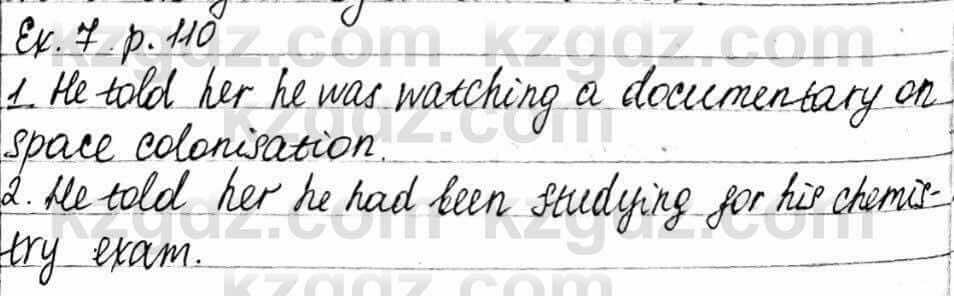 Ex. 7 p. 110
kzgdz.com kzgdz.com
1. He told her he was watching a documentary on
kzgdz.com
space colonisation.
2. He told her he had been studying for his chemis-
kzgdz.com kzgdz.com
try exam.
kzgdz.com